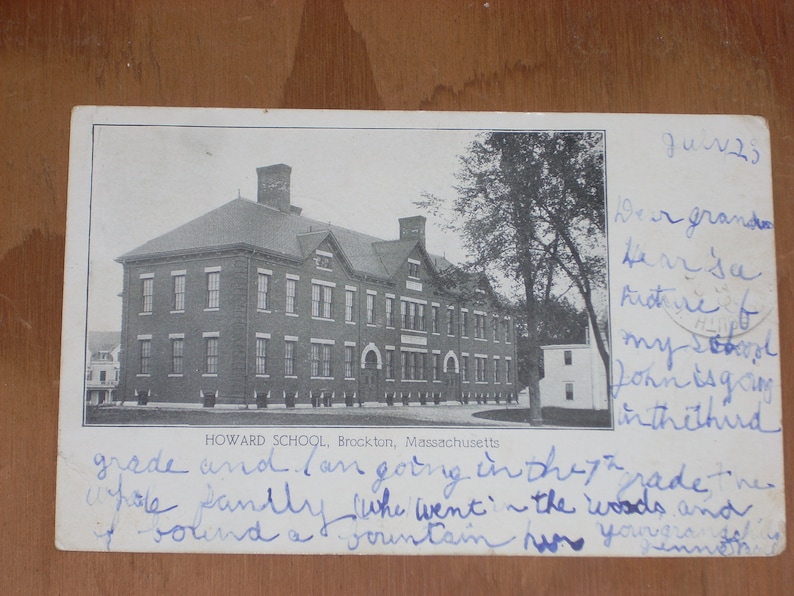 July 23
Dear
Hear's a
picture of
my school
John is going
in the third
HOWARD SCHOOL, Brockton, Massachusetts
grade and I am going in the 7th grade The
whole family (whe) went in the woods and
found a fountain
Your